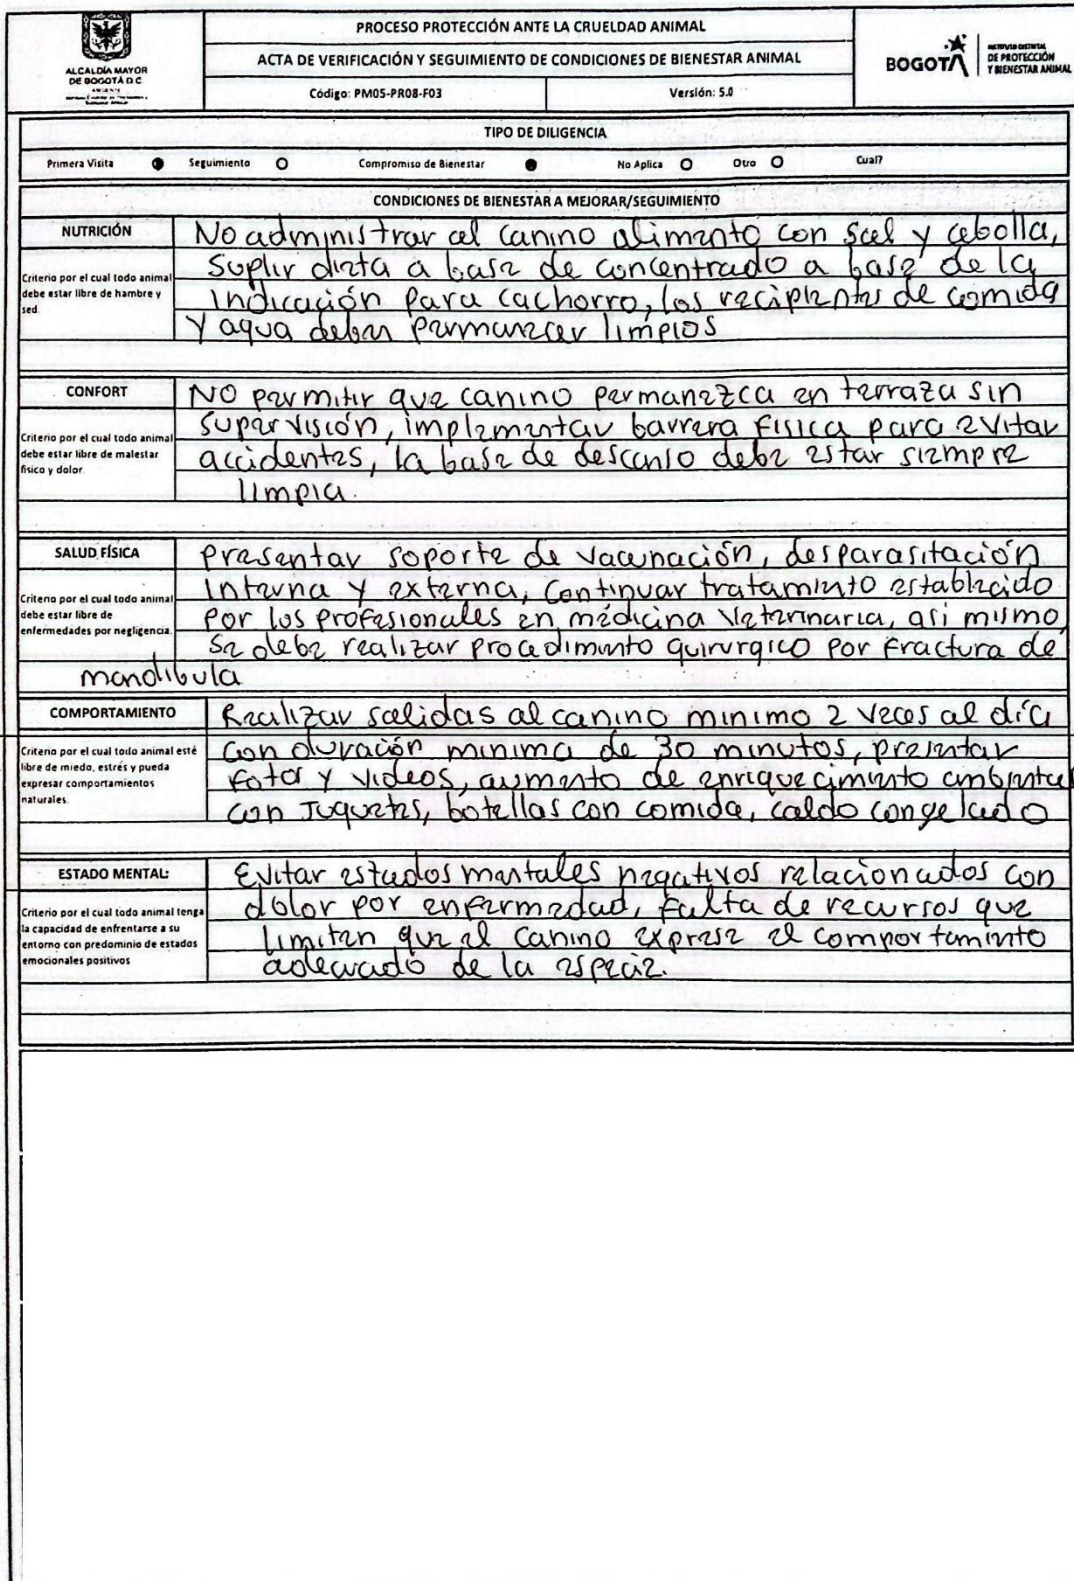 PROCESO PROTECCIÓN ANTE LA CRUELDAD ANIMAL
ACTA DE VERIFICACIÓN Y SEGUIMIENTO DE CONDICIONES DE BIENESTAR ANIMAL
Código: PM05-PR08-F03
Versión: 5.0
ALCALDÍA MAYOR
DE BOGOTÁ D.C.
AMBIENTE
BOGOTÁ
INSTITUTO DISTRITAL
DE PROTECCIÓN
Y BIENESTAR ANIMAL
TIPO DE DILIGENCIA
Primera Visita Seguimiento Compromiso de Bienestar No Aplica Otro Cual?
CONDICIONES DE BIENESTAR A MEJORAR/SEGUIMIENTO
NUTRICIÓN
Criterio por el cual todo animal
debe estar libre de hambre y
sed.
No administrar al canino alimento con sal y cebolla,
Suplir dieta a base de concentrado a base de la
indicación para cachorro, los recipientes de comida
y agua deben permanecer limpios
CONFORT
Criterio por el cual todo animal
debe estar libre de malestar
físico y dolor.
NO permitir que canino permanezca en terraza sin
supervisión, implementar barrera física para evitar
accidentes, la base de descanso debe estar siempre
limpia.
SALUD FÍSICA
Criterio por el cual todo animal
debe estar libre de
enfermedades por negligencia.
Presentar soporte de vacunación, desparasitación
Interna y externa, continuar tratamiento establecido
por los profesionales en médicina veterinaria, asi mismo
se debe realizar procedimiento quirurgico por fractura de
mandibula
COMPORTAMIENTO
Criterio por el cual todo animal esté
libre de miedo, estrés y pueda
expresar comportamientos
naturales.
Realizar salidas al canino minimo 2 veces al día
con duración minima de 30 minutos, presentar
fotos y videos, aumento de enriquecimiento ambiental
con juguetes, botellas con comida, caldo congelado
ESTADO MENTAL:
Criterio por el cual todo animal tenga
la capacidad de enfrentarse a su
entorno con predominio de estados
emocionales positivos
Evitar estados mentales negativos relacionados con
dolor por enfermedad, falta de recursos que
limiten que el canino exprese el comportamiento
adecuado de la especie.